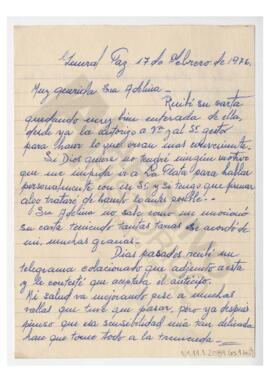 General Paz 17 de Febrero de 1976.
Muy querida Sra Adelina.
Recibí su carta
quedando muy bien enterada de ella,
desde ya la autorizo a Vd y al Sr gestor
para hacer lo que crean mas conveniente.
Si Dios quiere no tendré ningún motivo
que me impida ir a La Plata para hablar
personalmente con un Sr y si tengo que firmar
algo trataré de hacerlo lo antes posible.
Sra Adelina no sabe como me emocionó
su carta teniendo tantas tareas se acordó de
mí, muchas gracias.
Días pasados recibí un
telegrama colacionado que adjunto a esta
y le contesté que aceptaba el anticipo.
Mi salud va mejorando pese a muchas
vallas que tuve que pasar, pero ya después
pienso que esa sensibilidad mía tan delicada
hace que tome todo a la tremenda.